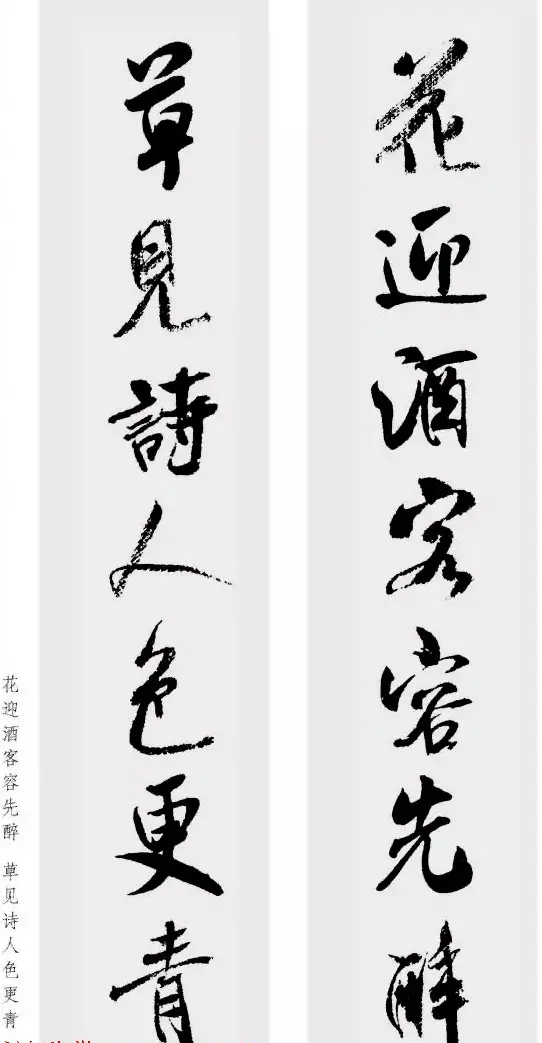 花迎酒客容先醉
草見詩人色更青
花迎酒客容先醉 草见诗人色更青